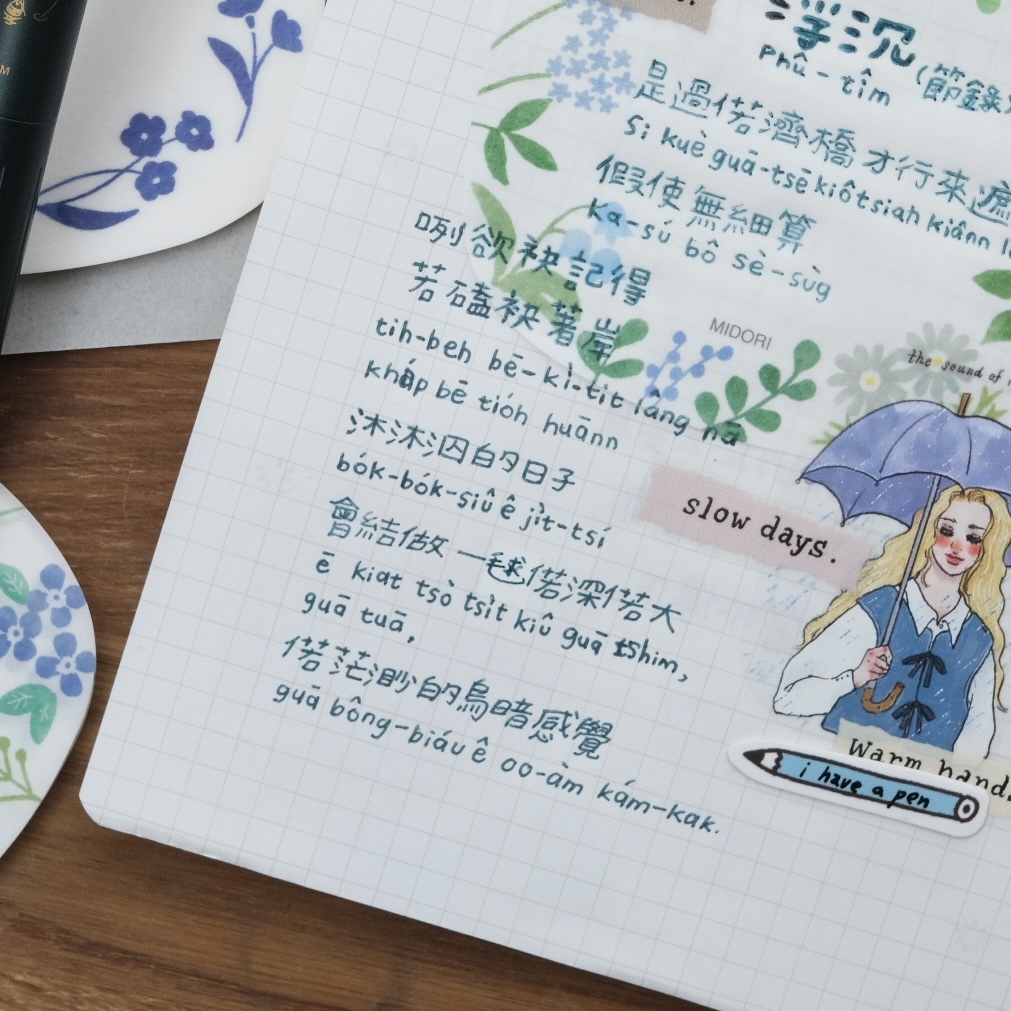 浮沉(節錄
Phû-tîm
是過偌濟橋才行來遮
Sī kuè guā-tsē kiô tsiah kiânn
假使無細算
ka-sú bô sè-sǹg
咧欲袂記得
若磕袂著岸
tih-beh bē-kì-tit lâng nā
kha̍p bē tio̍h huānn
沐沐泅的日子
bo̍k-bo̍k-siû ê ji̍t-tsí
會結做一毬偌深偌大
ē kiat tsò tsi̍t kiû guā tshim,
guā tuā,
偌茫渺的烏暗感覺
guā bông-biáu ê oo-àm kám-kak.
MIDORI
the sound of
slow days.
Warm hand
i have a pen
M